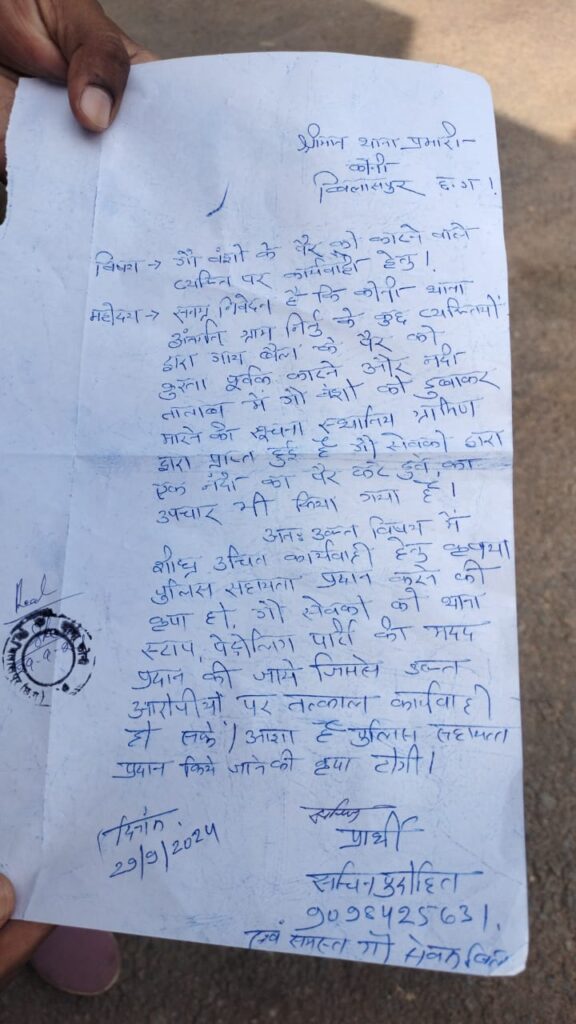 श्रीमान थाना प्रभारी
कोनी
बिलासपुर छ.ग।
विषय → गौ वंशो के पैर को काटने वाले
व्यक्ति पर कार्यवाही हेतु।
महोदय → सनम्र निवेदन है कि कोनी थाना
अंतर्गत ग्राम निरतु के कुछ व्यक्तियों
द्वारा गाय बैलों के पैर को
क्रुरता पूर्वक काटने और नदी
तालाब में गौ वंशो को डुबाकर
मारने की सूचना स्थानिय ग्रामिण
द्वारा प्राप्त हुई है गौ सेवको द्वारा
एक नंदी का पैर कटे हुवे, का
उपचार भी किया गया है।
अतः उक्त विषय में
शीघ्र उचित कार्यवाही हेतु कृपया
पुलिस सहायता प्रदान करने की
कृपा हो, गौ सेवको को थाना
स्टाप, पेट्रोलिंग पार्टी की मदद
प्रदान की जाये जिससे उक्त
आरोपीयों पर तत्काल कार्यवाही
हो सके। आशा है पुलिस सहायता
प्रदान किये जाने की कृपा होगी।
दिनांक
29/9/2024
प्रार्थी
सचिन पुरोहित
9098425631,
एवं समस्त गौ सेवक